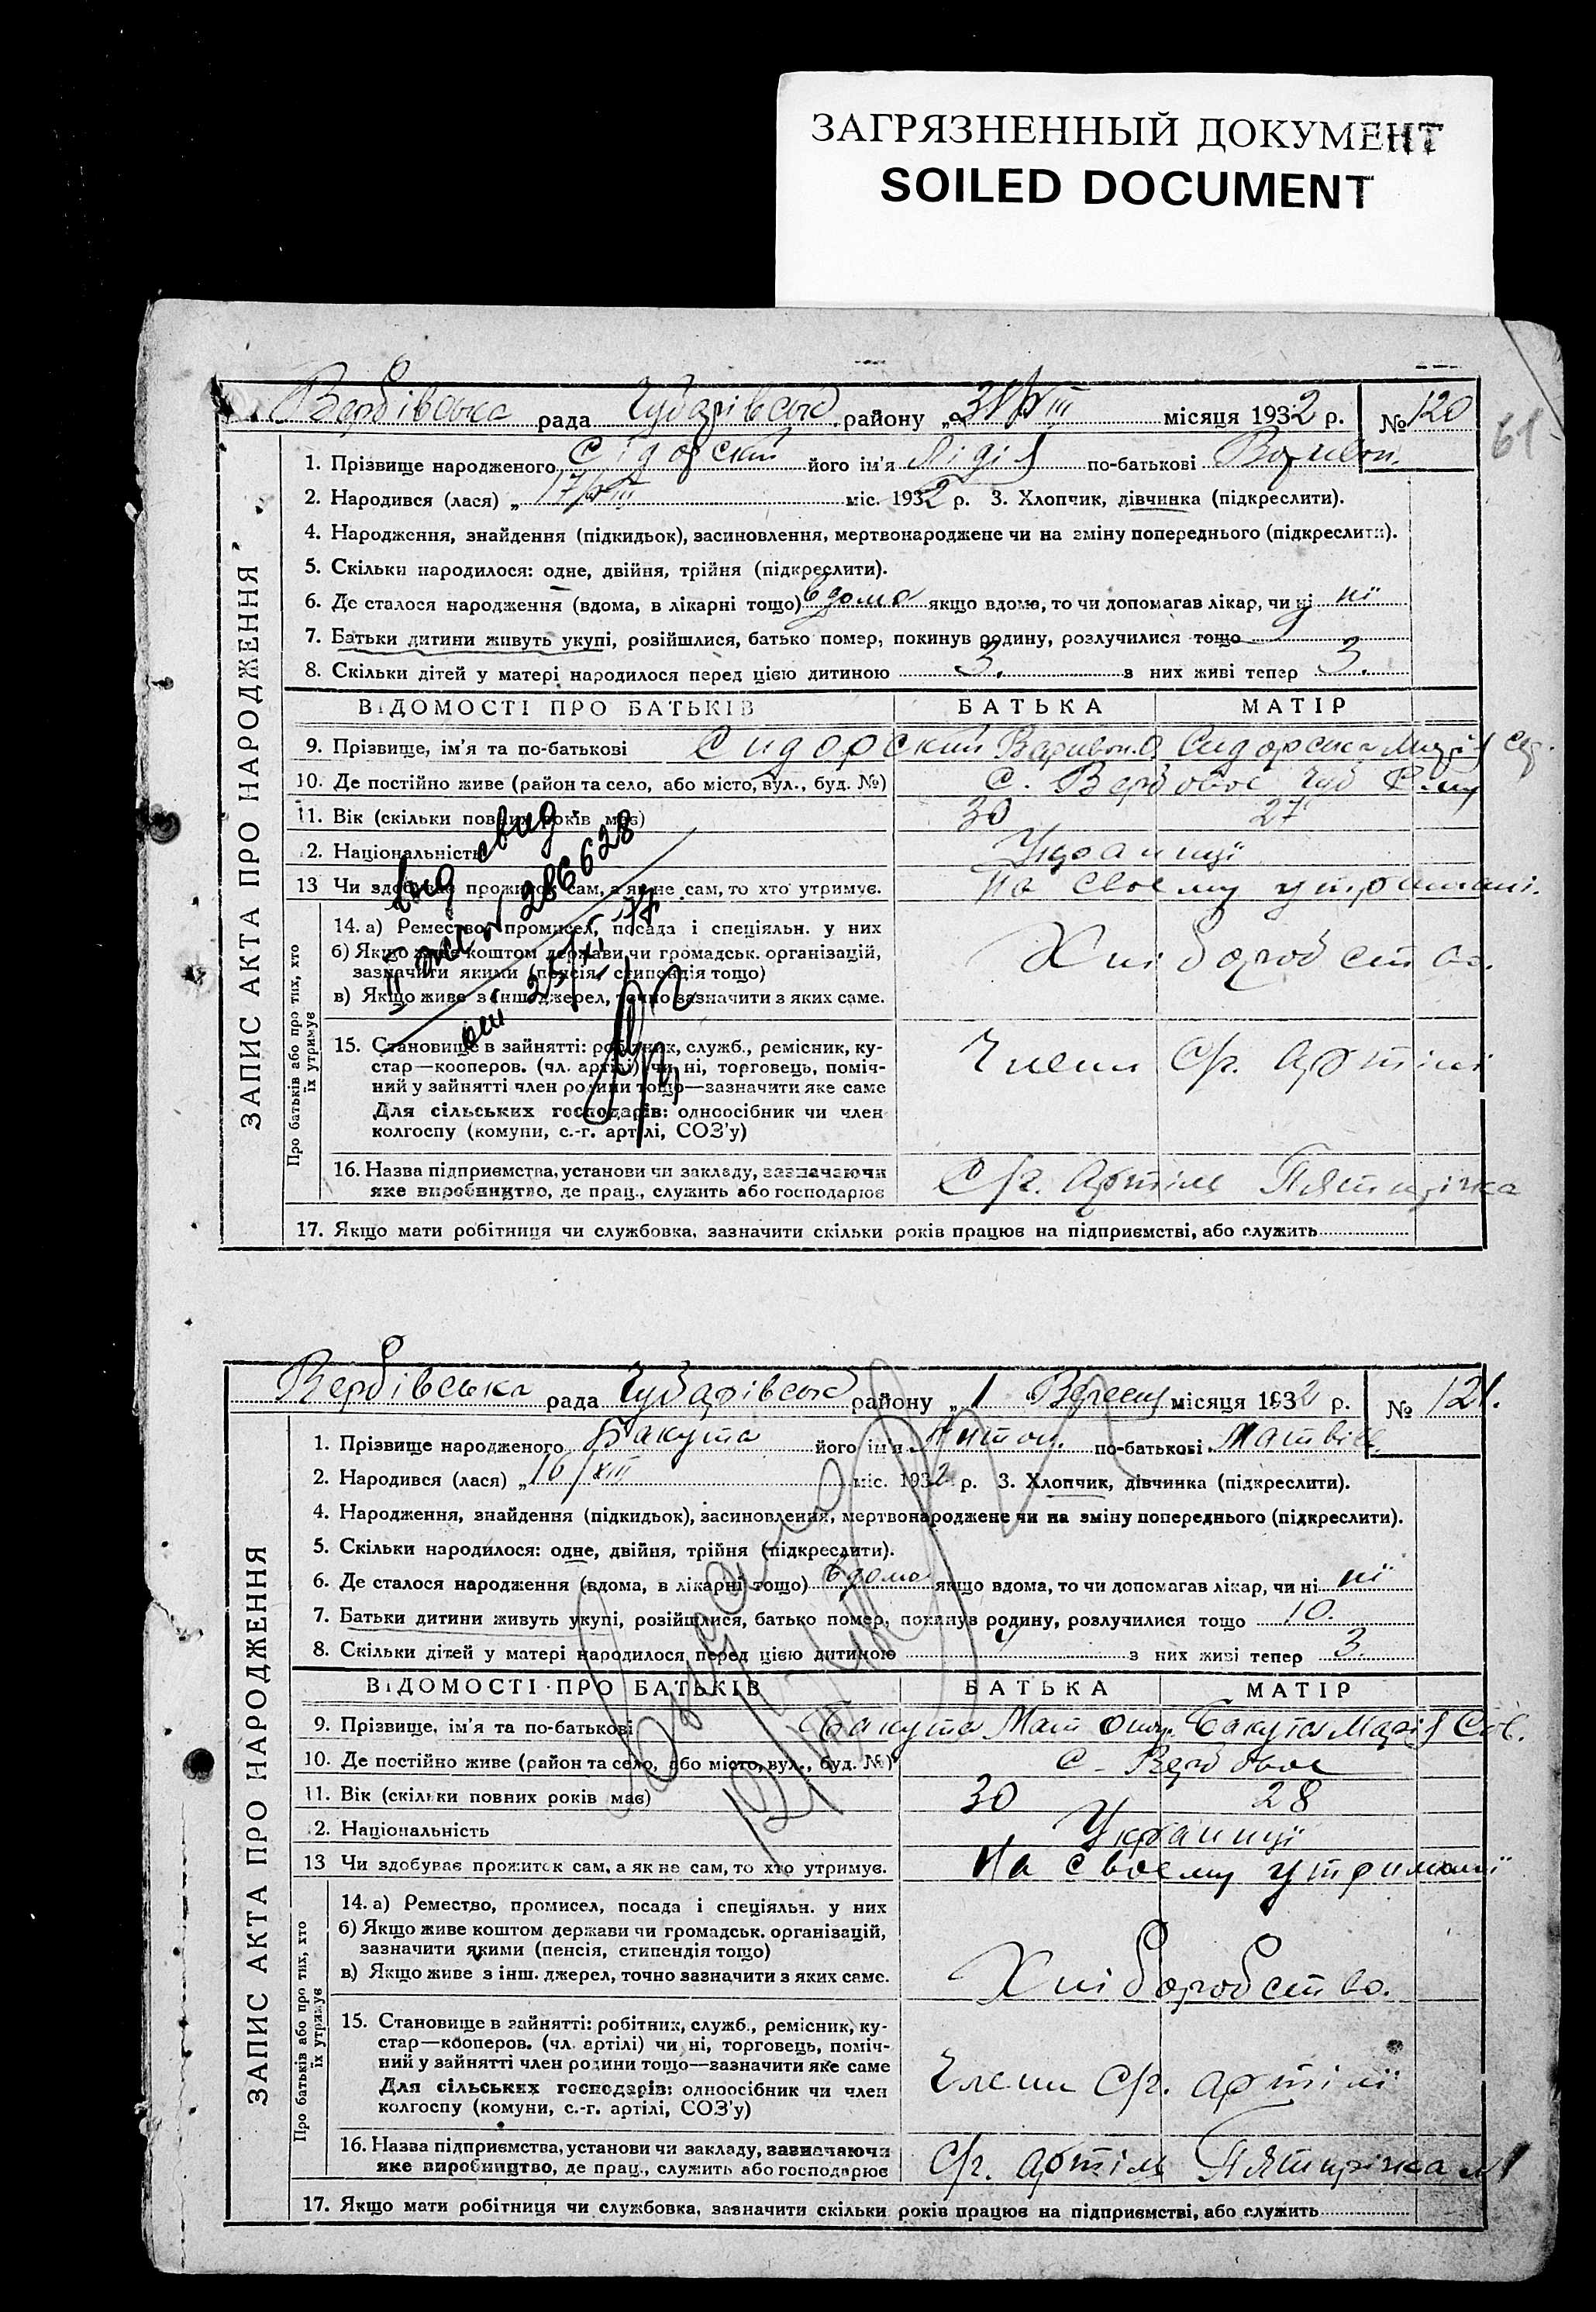 ЗАГРЯЗНЕННЫЙ ДОКУМЕНТ
SOILED DOCUMENT
61
Вербівська рада Чубарівськ району „ 31/VIII місяця 1932 р. № 120
ЗАПИС АКТА ПРО НАРОДЖЕННЯ
1. Прізвище народженого Сідорский його ім'я Лідія по-батькові
2. Народився (лася) „ 17/VIII міс. 1932 р. 3. Хлопчик, дівчинка (підкреслити).
4. Народження, знайдення (підкидьок), засиновлення, мертвонароджене чи на зміну попереднього (підкреслити).
5. Скільки народилося: одне, двійня, трійня (підкреслити).
6. Де сталося народження (вдома, в лікарні тощо) вдома якщо вдома, то чи допомагав лікар, чи ні ні
7. Батьки дитини живуть укупі, розійшлися, батько помер, покинув родину, розлучилися тощо
8. Скільки дітей у матері народилося перед цією дитиною 3. з них живі тепер 3.
ВІДОМОСТІ ПРО БАТЬКІВ БАТЬКА МАТІР
9. Прізвище, ім'я та по-батькові Сидорский Варивон. О. Сидорска Марія Сид.
10. Де постійно живе (район та село, або місто, вул., буд. №) С. Вербовое Чуб
11. Вік (скільки повних років має) 30 27
12. Національність Українці
13 Чи здобуває прожиток сам, а як не сам, то хто утримує. На своему утримані.
Про батьків або про тих, хто їх утримує
14. а) Ремество, промисел, посада і спеціяльн. у них
б) Якщо живе коштом держави чи громадськ. організацій,
зазначити якими (пенсія, стипендія тощо)
в) Якщо живе з інш. джерел, точно зазначити з яких саме.
Хліборобство.
15. Становище в зайнятті: робітник, служб., ремісник, ку-
стар—кооперов. (чл. артілі) чи ні, торговець, поміч-
ний у зайнятті член родини тощо—зазначити яке саме
Для сільських господарів: одноосібник чи член
колгоспу (комуни, с.-г. артілі, СОЗ'у)
Члени С/г. артілі
16. Назва підприємства, установи чи закладу, зазначаючи
яке виробництво, де прац., служить або господарює
С/г. артіль Пятирічка
17. Якщо мати робітниця чи службовка, зазначити скільки років працює на підприємстві, або служить
вид свид
286628
Вербівська рада Чубарівськ району „ 1 Вересня місяця 1932 р. № 121.
ЗАПИС АКТА ПРО НАРОДЖЕННЯ
1. Прізвище народженого Бакута його ім'я Антон. по-батькові Матвіев.
2. Народився (лася) „ міс. 1932 р. 3. Хлопчик, дівчинка (підкреслити).
4. Народження, знайдення (підкидьок), засиновлення, мертвонароджене чи на зміну попереднього (підкреслити).
5. Скільки народилося: одне, двійня, трійня (підкреслити).
6. Де сталося народження (вдома, в лікарні тощо) вдома якщо вдома, то чи допомагав лікар, чи ні ні
7. Батьки дитини живуть укупі, розійшлися, батько помер, покинув родину, розлучилися тощо 10.
8. Скільки дітей у матері народилося перед цією дитиною 4 з них живі тепер 3.
ВІДОМОСТІ ПРО БАТЬКІВ БАТЬКА МАТІР
9. Прізвище, ім'я та по-батькові Бакута Мат Бакута Марія
10. Де постійно живе (район та село, або місто, вул., буд. №) С - Вербовое
11. Вік (скільки повних років має) 30 28
12. Національність Українці
13 Чи здобуває прожиток сам, а як не сам, то хто утримує. На своему утриманні
Про батьків або про тих, хто їх утримує
14. а) Ремество, промисел, посада і спеціяльн. у них
б) Якщо живе коштом держави чи громадськ. організацій,
зазначити якими (пенсія, стипендія тощо)
в) Якщо живе з інш. джерел, точно зазначити з яких саме.
Хліборобство.
15. Становище в зайнятті: робітник, служб., ремісник, ку-
стар—кооперов. (чл. артілі) чи ні, торговець, поміч-
ний у зайнятті член родини тощо—зазначити яке саме
Для сільських господарів: одноосібник чи член
колгоспу (комуни, с.-г. артілі, СОЗ'у)
Члени С/г. артілі
16. Назва підприємства, установи чи закладу, зазначаючи
яке виробництво, де прац., служить або господарює
С/г. артіль Пятирічка №1
17. Якщо мати робітниця чи службовка, зазначити скільки років працює на підприємстві, або служить